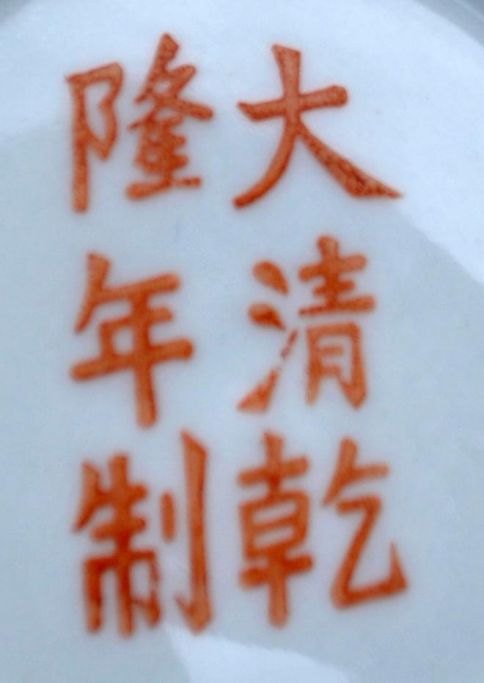 大清乾
隆年制